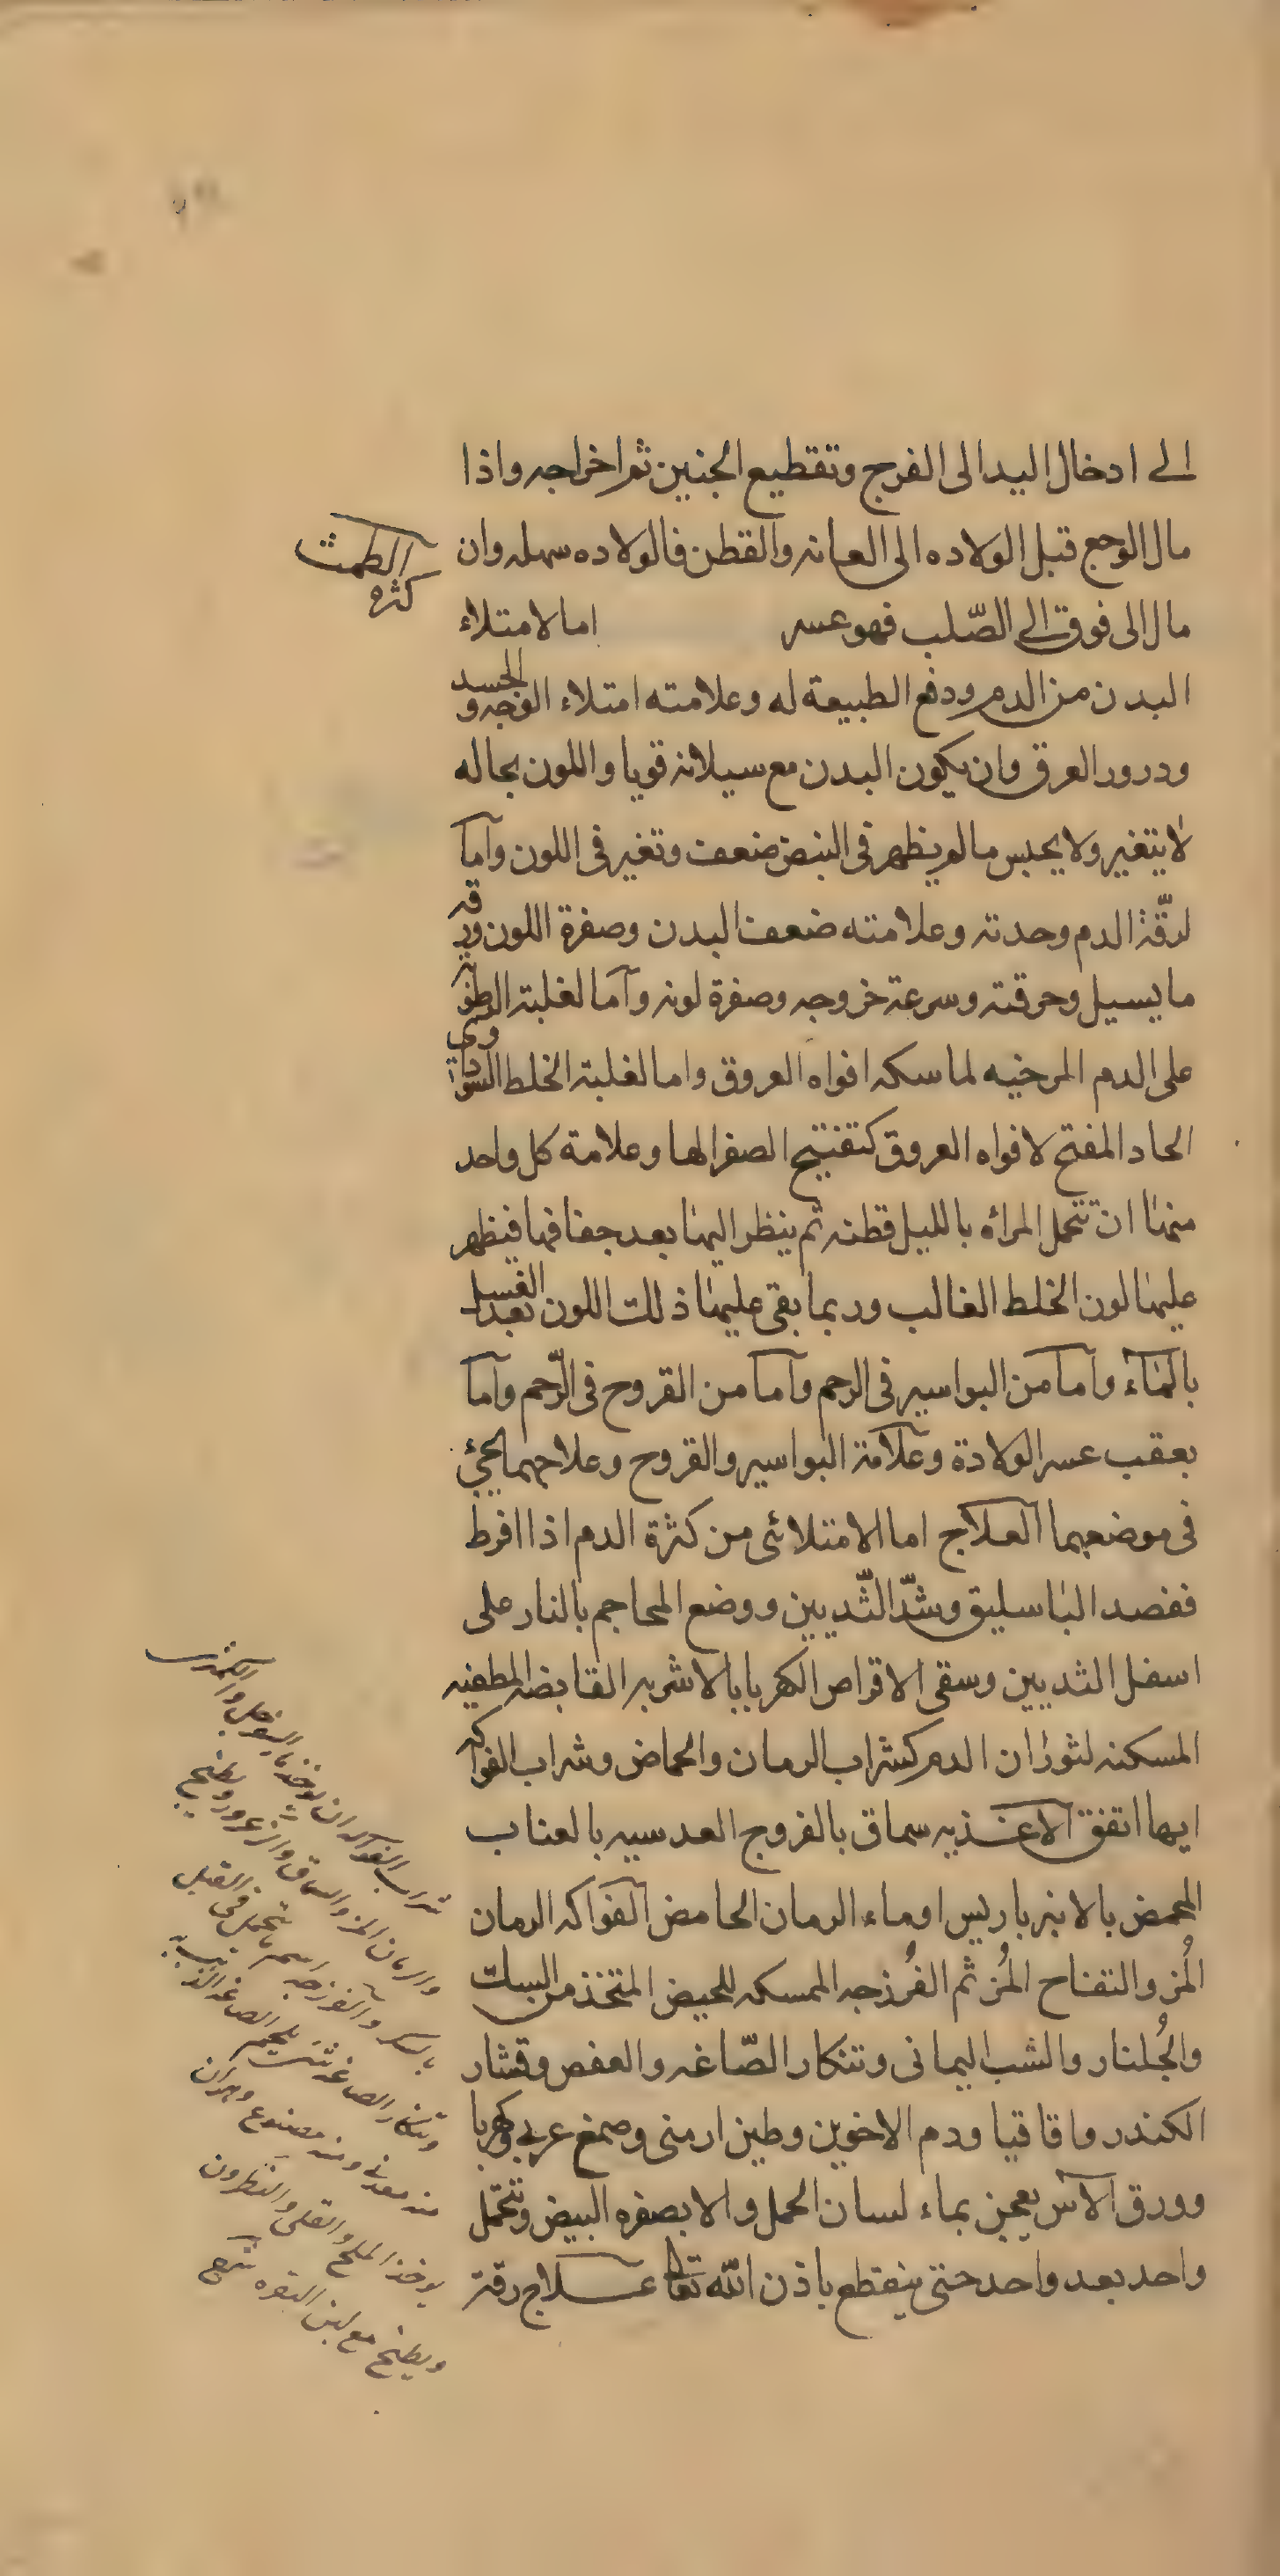 الى ادخال اليد الى الفرج وتقطيع الجنين ثم اخراجه واذا
مال الوجع قبل الولاده الى العانه والقطن فالولاده سهله وان
كثره الطمث
مال الى فوق الى الصّلب فهو عسر اما لامتلاء
البدن من الدم ودفع الطبيعة له وعلامته امتلاء الوجه والجسد
ودرور العرق وان يكون البدن مع سيلانه قويا واللون بحاله
لا يتغير ولا يحبس ما لم يظهر فى النبض ضعف وتغير فى اللون وآما
لرقّة الدم وحدته وعلامته ضعف البدن وصفرة اللون ورقه
ما يسيل وحرقته وسرعة خروجه وصفرة لونه وآما لغلبة الرطوبه
على الدم المرخيه لماسكه افواه العروق واما لغلبة الخلط السوداوى
الحاد المفتح لافواه العروق كتفتيح الصفرا لها وعلامة كل واحد
منها ان تتحمل المرأه بالليل قطنه ثم ينظر اليها بعد جفافها فيظهر
عليها لون الخلط الغالب وربما بقى عليها ذلك اللون بعد الغسل
بالماء وآما من البواسير فى الرحم وآما من القروح فى الرّحم وآما
بعقب عسر الولادة وعلامة البواسير والقروح وعلاجهما يجئ
فى موضعهما العلاج اما الامتلائى من كثرة الدم اذا افرط
ففصد الباسليق وشدّ الثّديين ووضع المحاجم بالنار على
اسفل الثديين وسقى الاقراص الكهربا بالاشربه القابضه المطفيه
المسكنه لثوران الدم كشراب الرمان والحماض وشراب الفواكه
ايها اتفق الاغذيه سماق بالفروج العدسيه بالعناب
المحمض بالانبرباريس او ماء الرمان الحامض الفواكه الرمان
المُز والتفاح المُز ثم الفُرزجه الممسكه للحيض المتخذ من السك
والجُلنار والشب اليمانى وتنكار الصّاغه والعفص وقشار
الكندر واقاقيا ودم الاخوين وطين ارمنى وصمغ عربى وكهربا
وورق الآس يعجن بماء لسان الحمل والا بصفره البيض وتتحمّل
واحد بعد واحد حتى ينقطع باذن الله تعالى علاج رقة
شراب الفواكه ان يوخذ ماء السفرجل والكمثرى
والرمان المز والسماق والزعرور ويطبخ
بالسكر والفرزجه اسم ما تحمل فى القبل
وتنكار الصاغه شئ يلحم الصاغه الذهب به
منه معدنى ومنه مصنوع وهو ان
يوخذ الملح والقلى والنطرون
ويطبخ مع لبن البقره